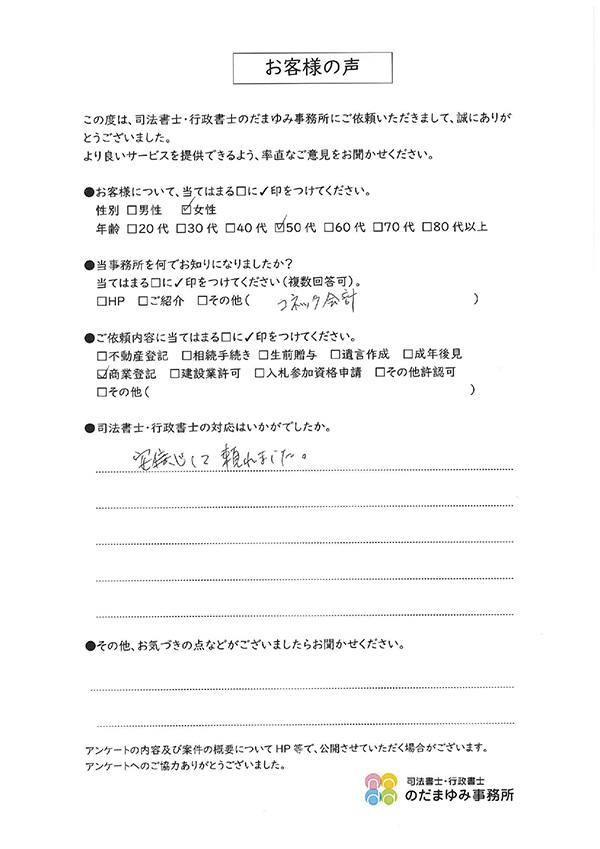 お客様の声
この度は、司法書士・行政書士のだまゆみ事務所にご依頼いただきまして、誠にありが
とうございました。
より良いサービスを提供できるよう、率直なご意見をお聞かせください。
●お客様について、当てはまる□に✓印をつけてください。
性別 □男性 ☑女性
年齢 □20代 □30代 □40代 ☑50代 □60代 □70代 □80代以上
●当事務所を何でお知りになりましたか？
当てはまる□に✓印をつけてください（複数回答可）。
□HP □ご紹介 □その他( コネック会計 )
●ご依頼内容に当てはまる□に✓印をつけてください。
□不動産登記 □相続手続き □生前贈与 □遺言作成 □成年後見
☑商業登記 □建設業許可 □入札参加資格申請 □その他許認可
□その他( )
●司法書士・行政書士の対応はいかがでしたか。
安心して頼れました。
●その他、お気づきの点などがございましたらお聞かせください。
アンケートの内容及び案件の概要についてHP等で、公開させていただく場合がございます。
アンケートへのご協力ありがとうございました。
司法書士・行政書士
のだまゆみ事務所